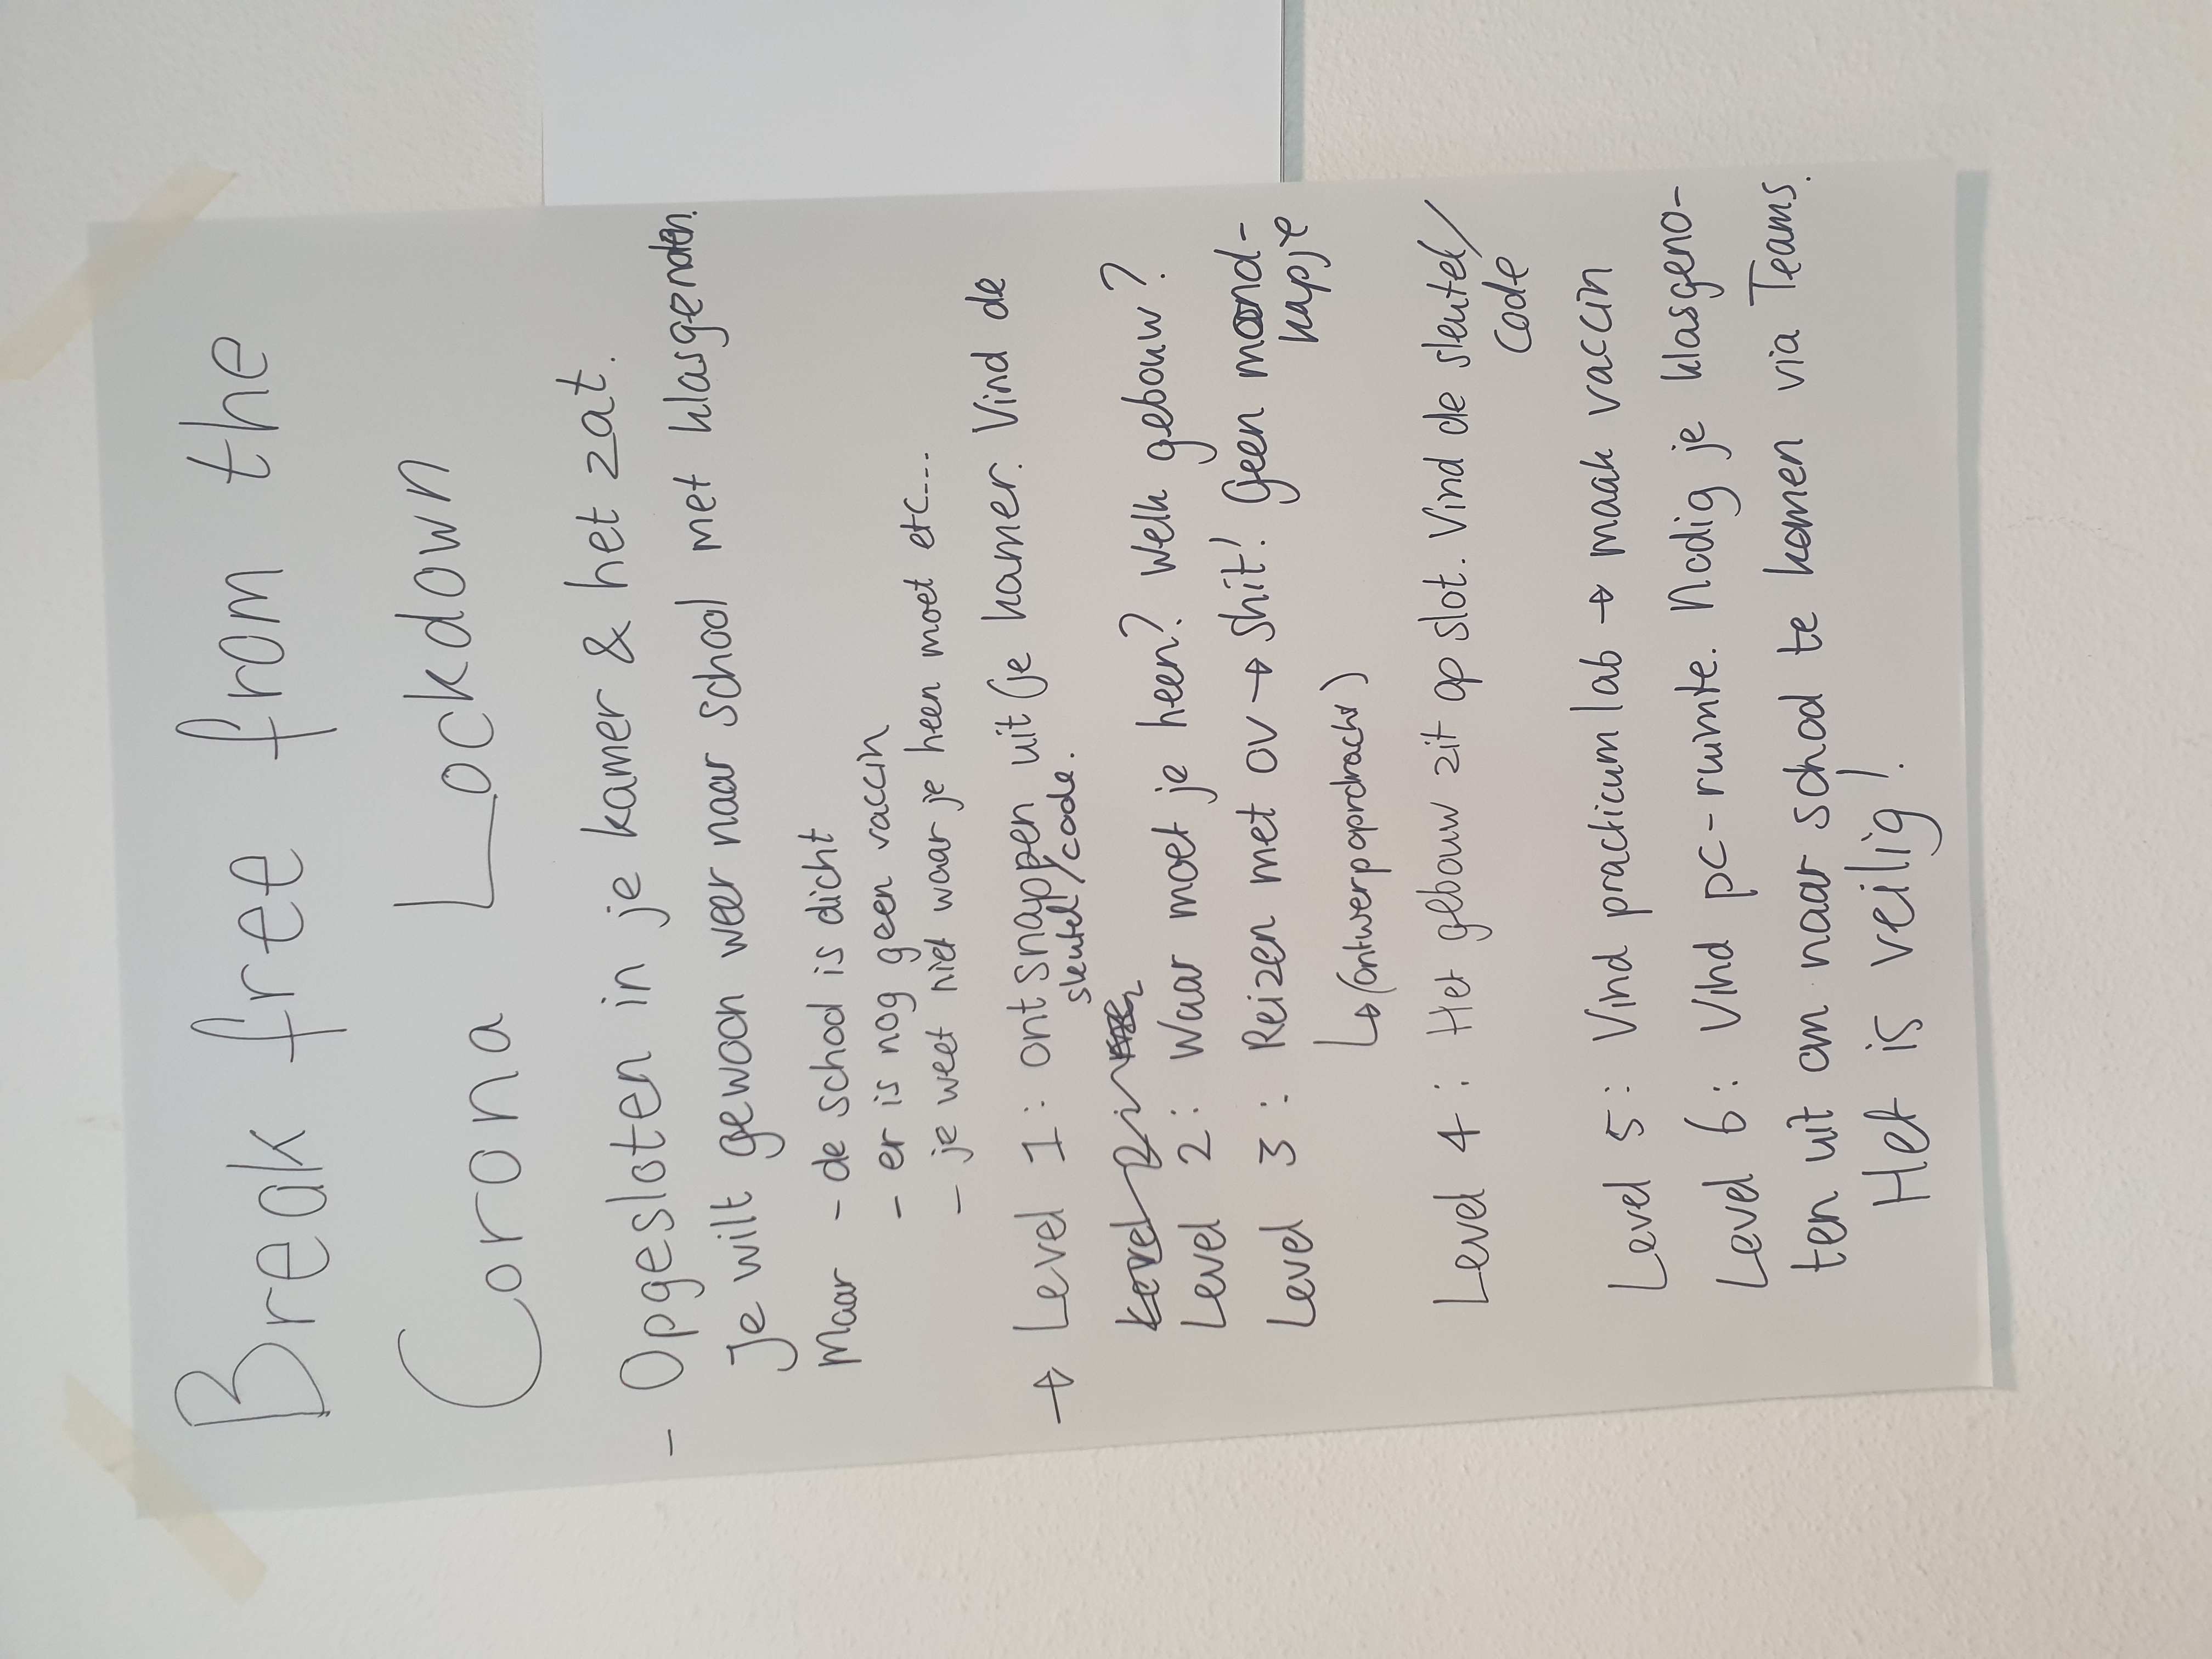 Break free from the
Corona Lockdown
- Opgesloten in je kamer & het zat.
Je wilt gewoon weer naar school met klasgenoten.
Maar - de school is dicht
- er is nog geen vaccin
- je weet niet waar je heen moet etc...
→ Level 1: ontsnappen uit je kamer. Vind de
sleutel/code.
Level 2:
Level 2: Waar moet je heen? Welk gebouw?
Level 3: Reizen met ov → shit! Geen mond-
kapje
↳ (ontwerpoprdracht)
Level 4: Het gebouw zit op slot. Vind de sleutel/
code
Level 5: Vind practicum lab → maak vaccin
Level 6: Vind pc-ruimte. Nodig je klasgeno-
ten uit om naar school te komen via Teams.
Het is veilig!